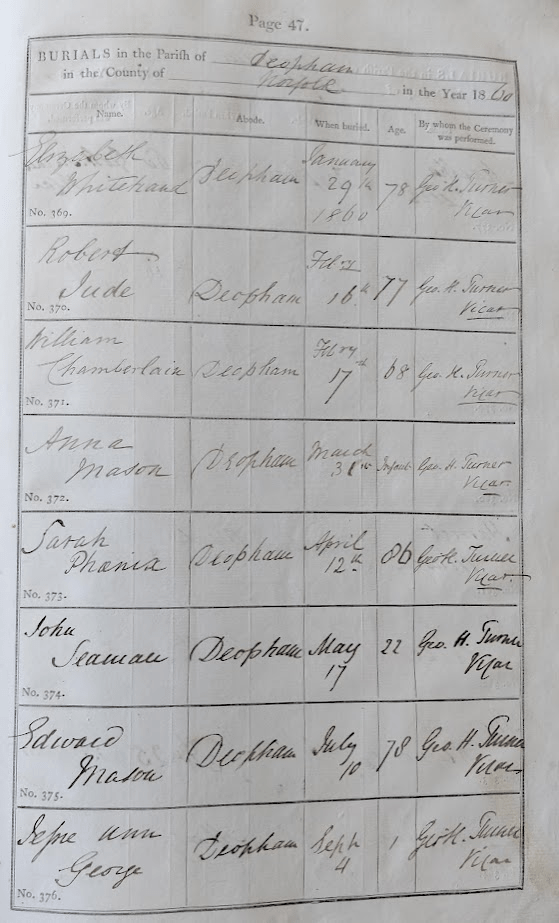 Page 47.
BURIALS in the Parish of Deopham
in the County of Norfolk in the Year 1860
Name. Abode. When buried. Age. By whom the Ceremony was performed.
Elizabeth
Whitehand
No. 369.
Deopham
January
29th
1860
78
Geo H. Turner
Vicar
Robert
Jude
No. 370.
Deopham
Febry
16th
77
Geo. H. Turner
Vicar
William
Chamberlain
No. 371.
Deopham
Febry
17th
68
Geo. H. Turner
Vicar
Anna
Mason
No. 372.
Deopham
March
31st
Infant
Geo. H. Turner
Vicar
Sarah
Phœnix
No. 373.
Deopham
April
12th
86
Geo H. Turner
Vicar
John
Seaman
No. 374.
Deopham
May
17
22
Geo. H. Turner
Vicar
Edward
Mason
No. 375.
Deopham
July
10
78
Geo. H. Turner
Vicar
Jesse Ann
George
No. 376.
Deopham
Septr
4
1
Geo H. Turner
Vicar